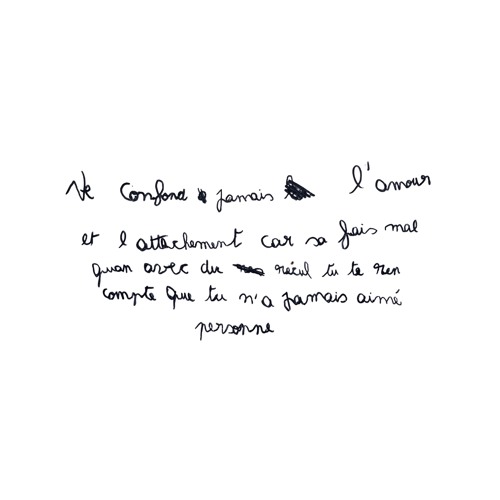 Ne Confond jamais l'amour
et l attachement car sa fais mal
quan avec du récul tu te ren
compte que tu n'a jamais aimé
personne